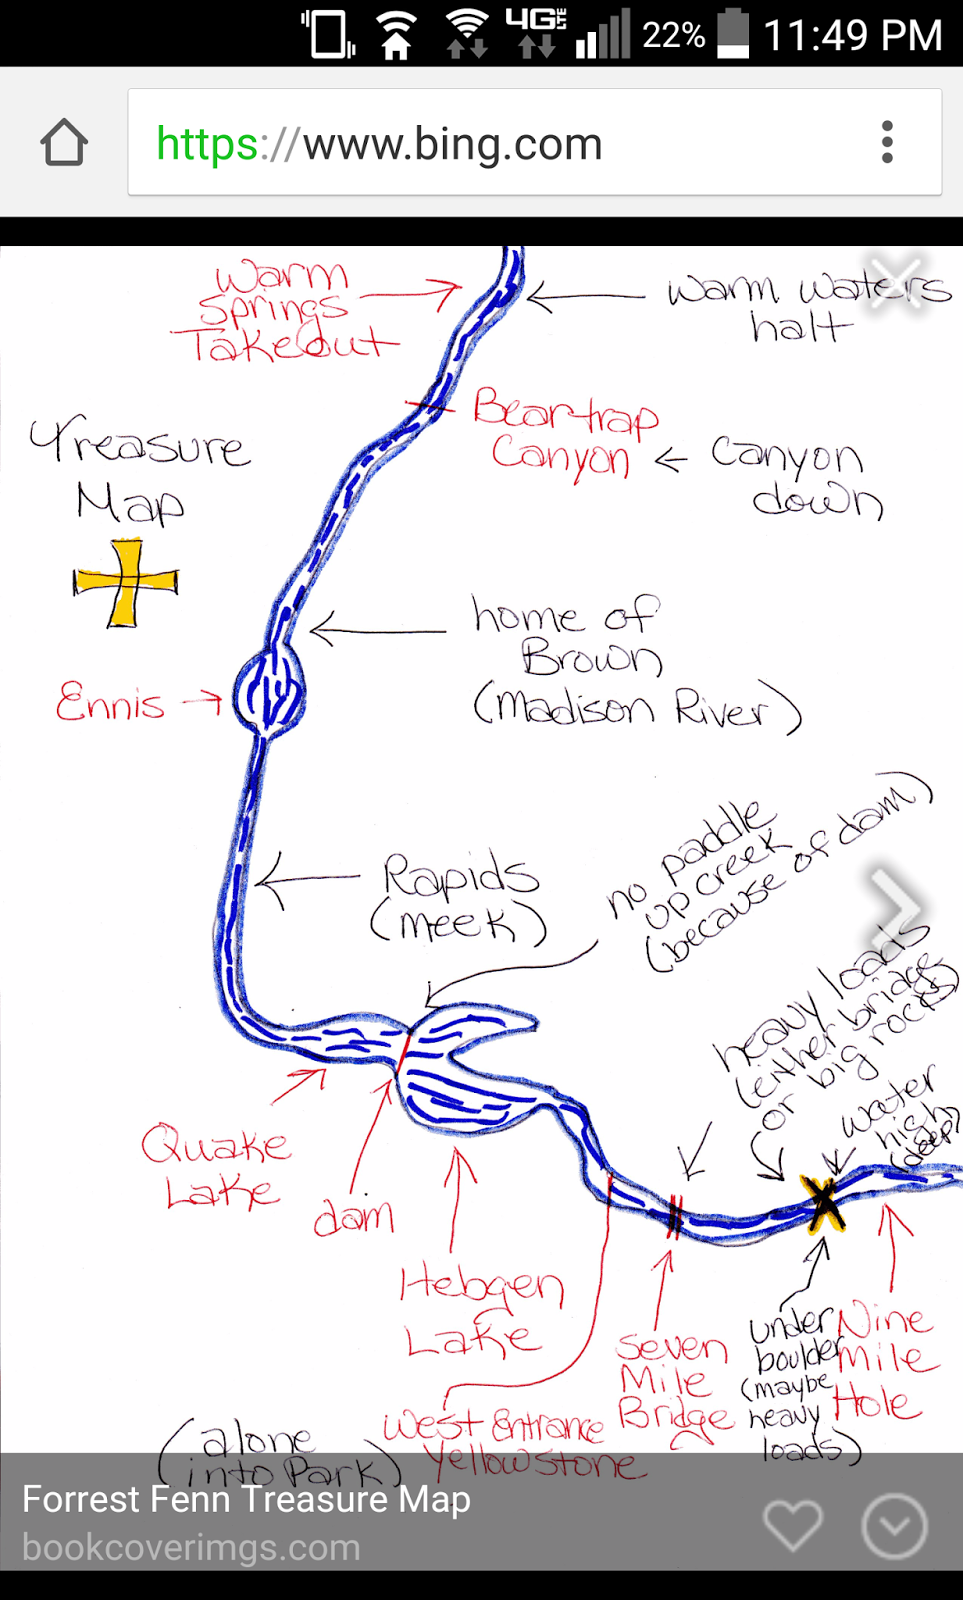 4G LTE 22% 11:49 PM
https://www.bing.com
Warm
Springs
Takeout
warm waters
halt
Beartrap
Canyon
Canyon
down
Treasure
Map
home of
Brown
(Madison River)
Ennis
Rapids
(meek)
no paddle
up creek
(because of dam)
heavy loads
(either bridge
or big rocks)
water
high
(deep)
Quake
Lake
dam
Hebgen
Lake
Seven
Mile
Bridge
under
boulder
(maybe
heavy
loads)
Nine
mile
Hole
West Entrance
Yellowstone
(alone
into Park)
Forrest Fenn Treasure Map
bookcoverimgs.com